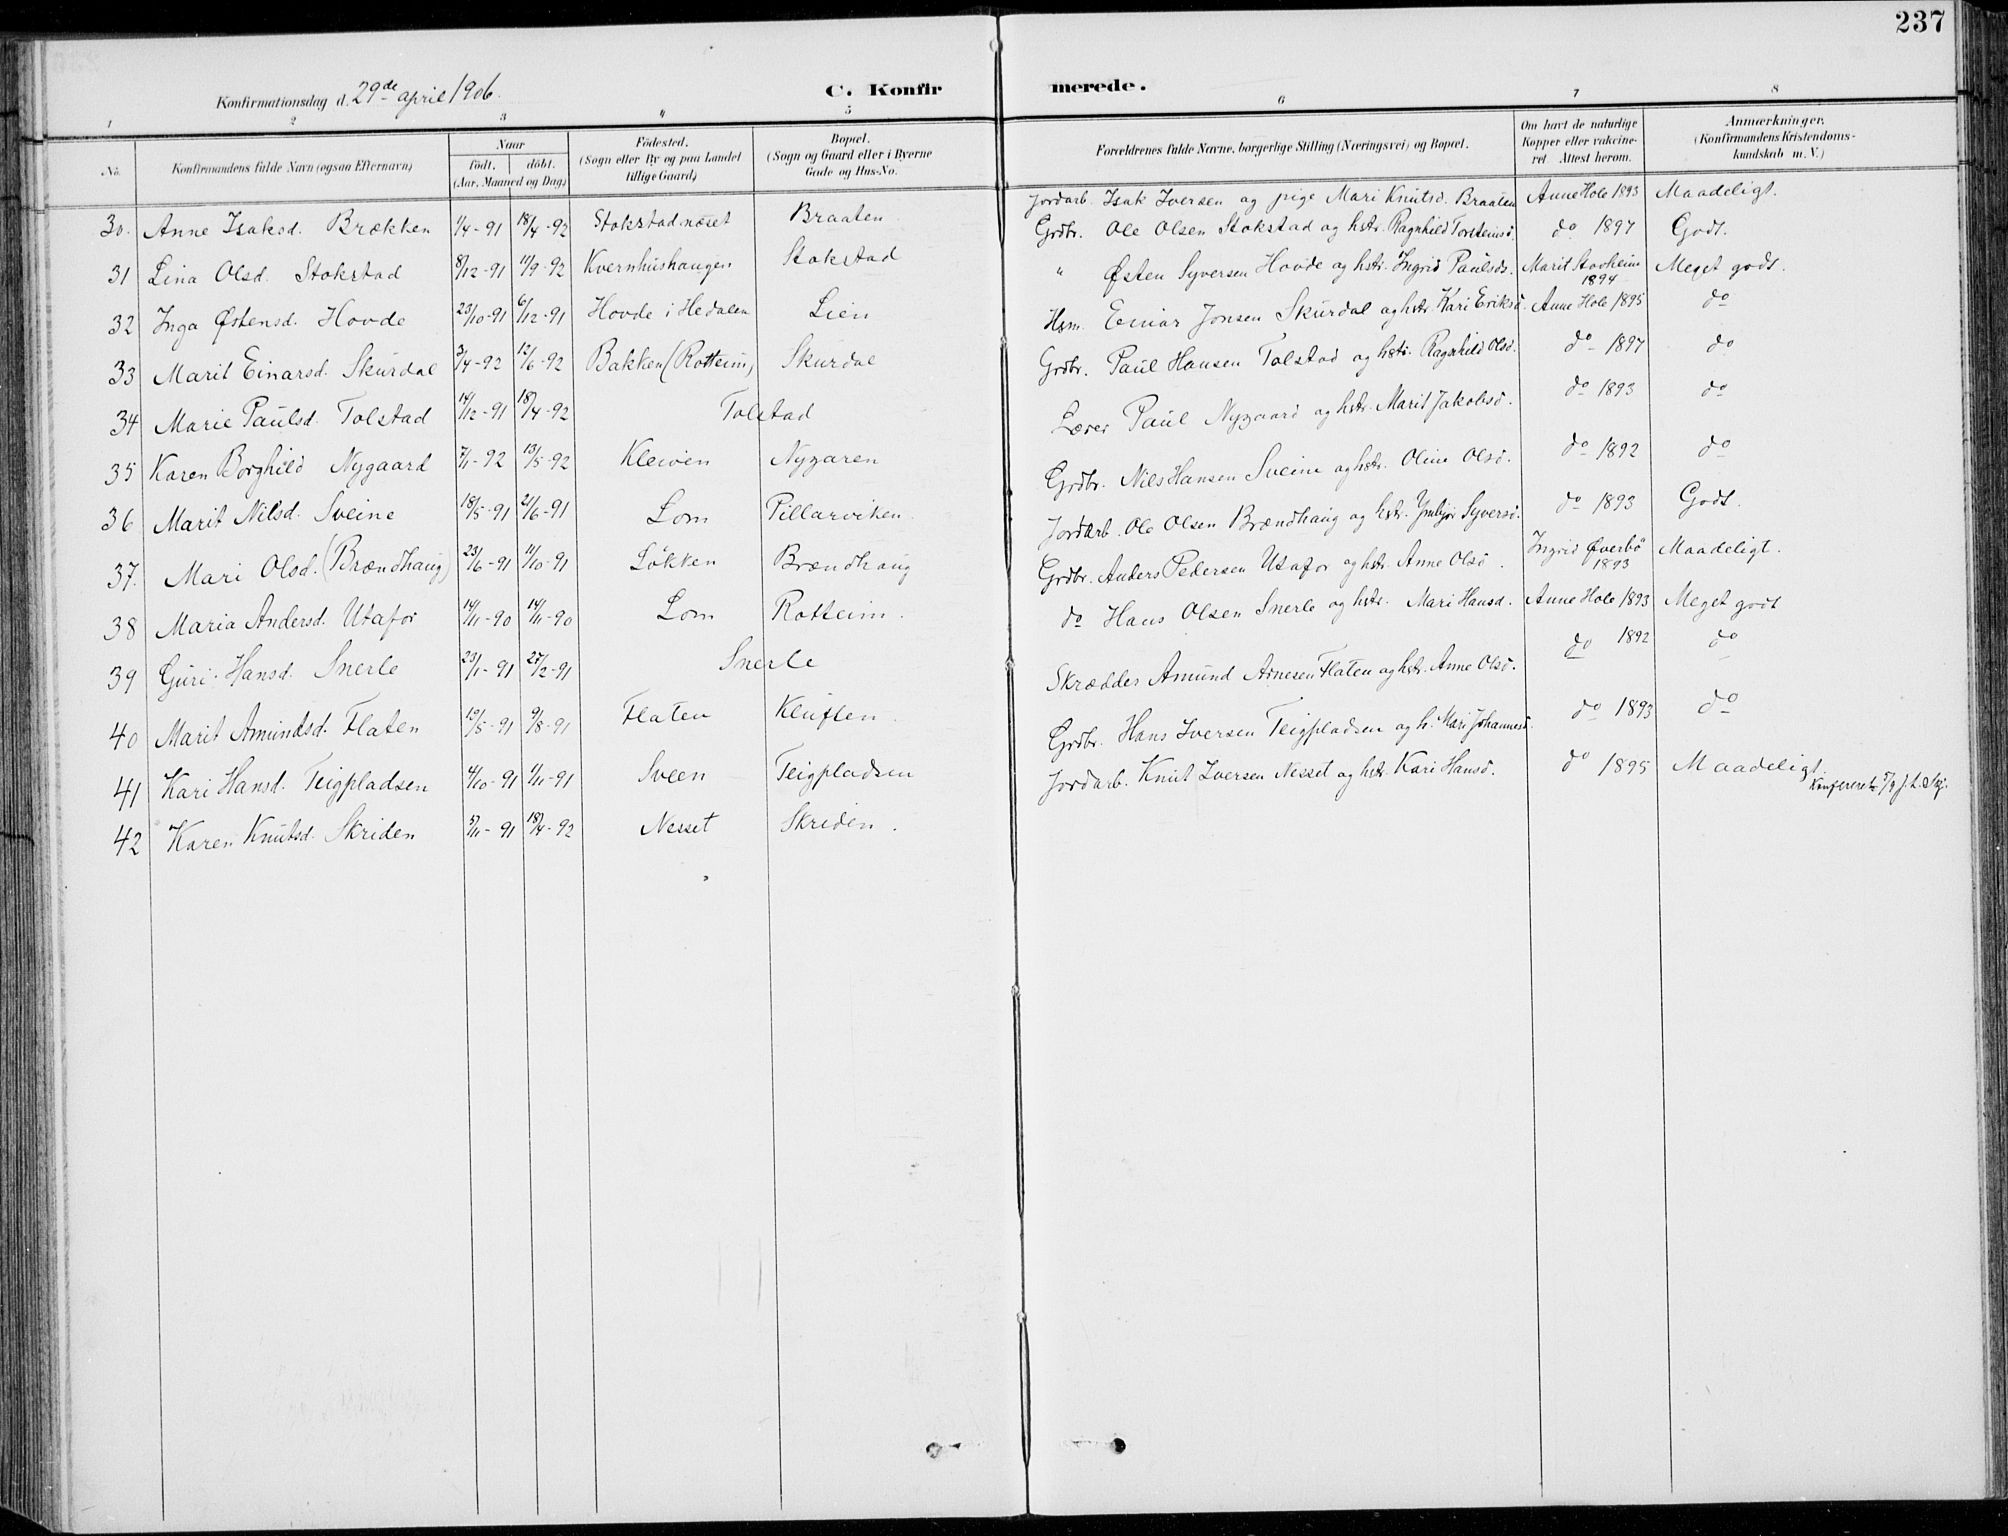 237
Konfirmationsdag d. 29de april 1906.
C. Konfirmerede.
1 2 3 4 5 6 7 8
No.
Konfirmandens fulde Navn (ogsaa Efternavn)
Naar
født. døbt.
(Aar, Maaned og Dag)
Fødested.
(Sogn eller By og paa Landet
tillige Gaard)
Bopæl.
(Sogn og Gaard eller i Byerne
Gade og Hus-No.
Forældrenes fulde Navne, borgerlige Stilling (Næringsvei) og Bopæl.
Om havt de naturlige
Kopper eller vakcine-
ret Attest herom.
Anmærkninger.
(Konfirmandens Kristendoms-
kundskab m. V.)
30. Anne Isaksd. Brækken 1/4-91 18/4-92 Stokstadnæset Braaten Jordarb. Isak Iversen og pige Mari Knutsd. Braaten Anne Hole 1893 Maadeligt.
31 Lina Olsd. Stokstad 8/12-91 11/9-92 Kvernhushaugen Stokstad Grdbr. Ole Olsen Stokstad og hstr. Ragnhild Torsteinsd. do 1897 Godt.
32 Inga Østensd. Hovde 23/10-91 6/12-91 Hovde i Hedalen Lien " Østen Syversen Hovde og hstr. Ingrid Paulsd. Marit Stavheim 1894 Meget godt.
33 Marit Einarsd. Skurdal 3/4-92 12/6-92 Bakken (Rotteim) Skurdal Hsm. Einar Jonsen Skurdal og hstr. Kari Eriksd. Anne Hole 1895 do
34 Marie Paulsd. Tolstad 14/12-91 18/4-92 Tolstad Grdbr. Paul Hansen Tolstad og hstr. Ragnhild Olsd. do 1897 do
35 Karen Borghild Nygaard 7/1-92 13/5-92 Kleiven Nygaren Lærer Paul Nygaard og hstr. Marit Jakobsd. do 1893 do
36 Marit Nilsd. Sveine 18/5-91 21/6-91 Lom Pillarviken Grdbr. Nils Hansen Sveine og hstr. Oline Olsd. do 1892 do
37. Mari Olsd. (Brændhaug) 23/6-91 11/10-91 Løkken Brændhaug Jordarb. Ole Olsen Brændhaug og hstr. Ymbjør Syversd. do 1893 Godt.
38 Maria Andersd. Utafor 14/11-90 14/11-90 Lom Rotteim. Grdbr. Anders Pedersen Utafor og hstr. Anne Olsd. Ingrid Øverbø 1893 Maadeligt.
39 Guri Hansd. Snerle 23/1-91 27/2-91 Snerle do Hans Olsen Snerle og hstr. Mari Hansd. Anne Hole 1893 Meget godt
40 Marit Amundsd. Flaten 19/5-91 9/8-91 Flaten Kluften. Skrædder Amund Arnesen Flaten og hstr. Anne Olsd. do 1892 do
41 Kari Hansd. Teigpladsen 4/10-91 1/11-91 Sveen Teigpladsen Grdbr. Hans Iversen Teigpladsen og h. Mari Johannesd. do 1893 do
42 Karen Knutsd. Skriden 5/11-91 18/4-92 Nesset Skriden. Jordarb. Knut Iversen Nesset og hstr. Kari Hansd. do 1895 Maadeligt.